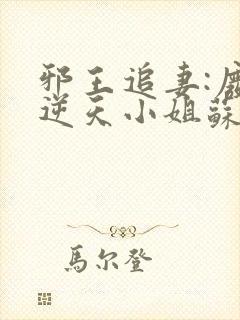 邪王追妻:廢
逆天小姐蘇
馬尔登